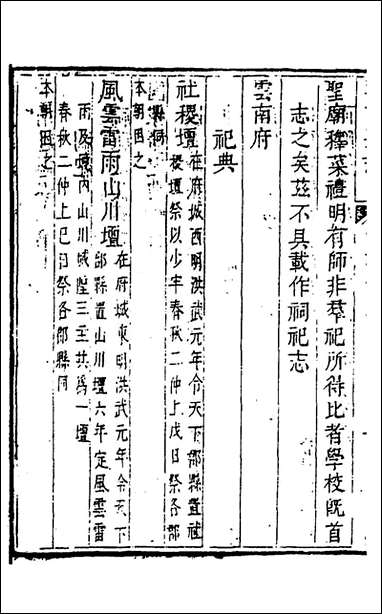 聖廟釋菜禮明有師非羣祀所得比者學校旣首
志之矣茲不具載作祠祀志
雲南府
祀典
社稷壇在府城西明洪武元年令天下郡縣置社
稷壇祭以少牢春秋二仲上戊日祭各郡
縣同
本朝因之
風雲雷雨山川壇在府城東明洪武元年令天下
郡縣置山川壇六年定風雲雷
雨及境內山川城隍三主共爲一壇
春秋二仲上巳日祭各郡縣同
本朝因之